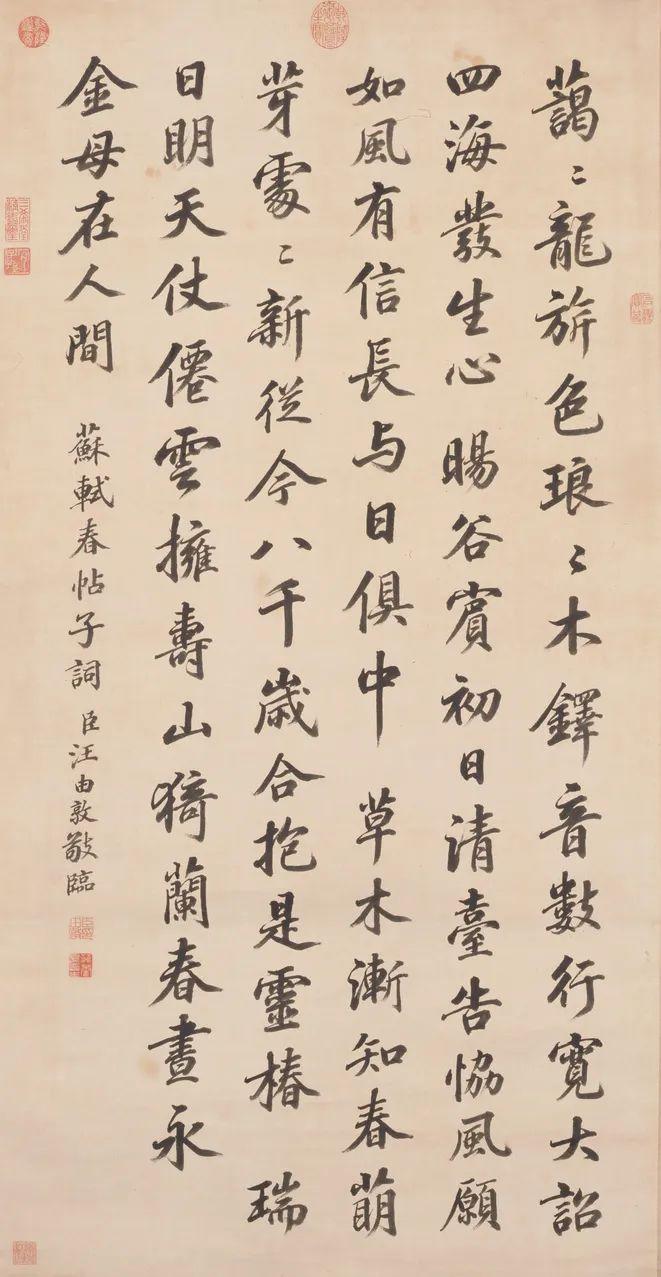 藹〻龍旂色琅〻木鐸音數行寬大詔
四海發生心 暘谷賓初日清臺告協風願
如風有信長与日俱中 草木漸知春萌
芽處〻新從今八千歲合抱是靈椿 瑞
日明天仗僊雲擁壽山猗蘭春晝永
金母在人間
蘇軾春帖子詞 臣汪由敦敬臨